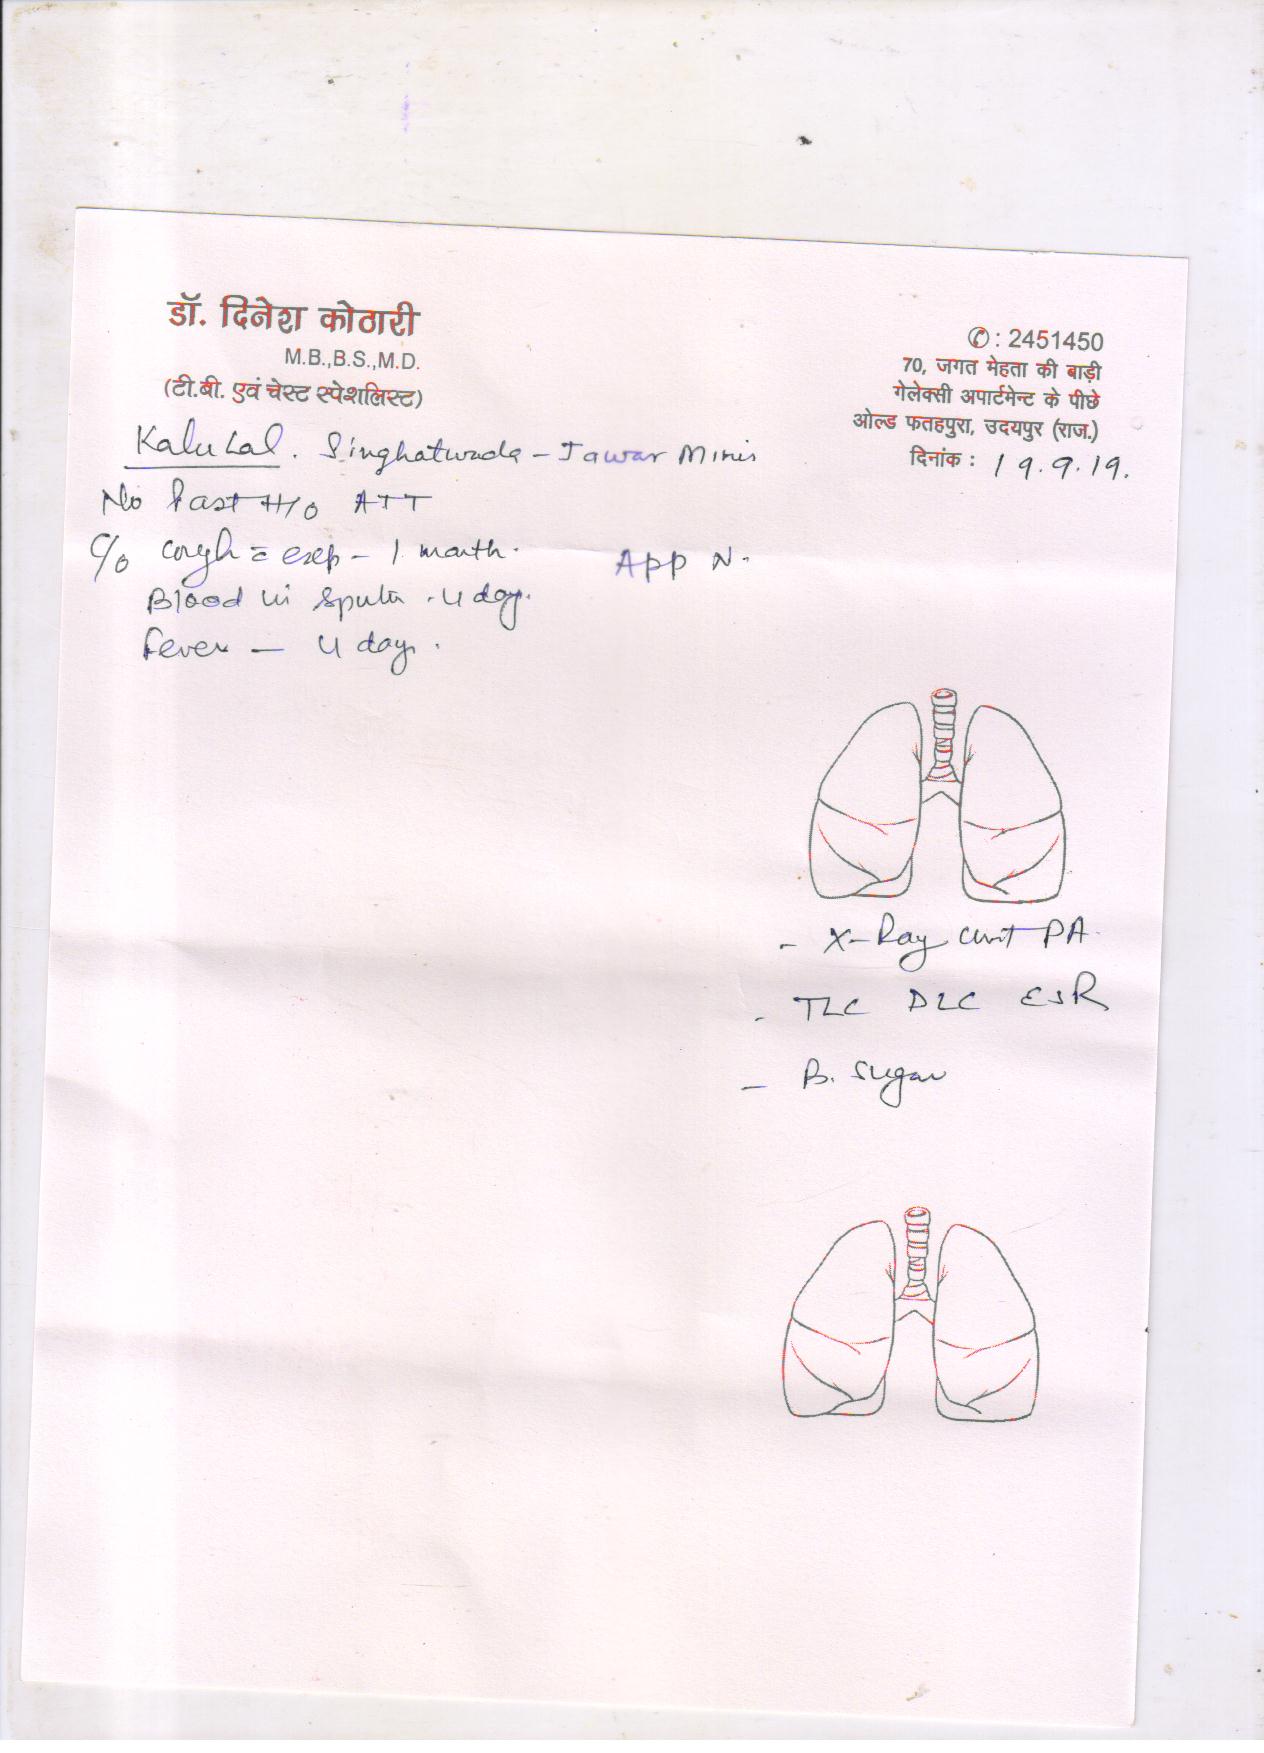 डॉ. दिनेश कोठारी
M.B.,B.S.,M.D.
(टी.बी. एवं चेस्ट स्पेशलिस्ट)
✆ : 2451450
70, जगत मेहता की बाड़ी
गेलेक्सी अपार्टमेन्ट के पीछे
ओल्ड फतहपुरा, उदयपुर (राज.)
दिनांक : 19.9.19.
Kalu Lal. Singhatwada - Jawar Mines
No Past H/O ATT
C/o cough c̄ exp - 1 month.
App N.
Blood in sputum . 4 day.
Fever — 4 day.
- X-Ray chest PA
- TLC DLC ESR
- B. Sugar